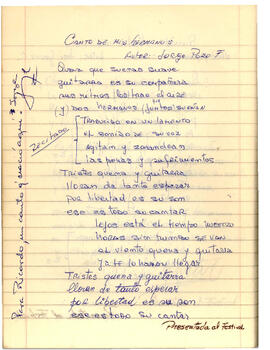 CANTO DE MIS HERMANOS
Autor: JORGE POZO F
QUENA QUE SUENAS SUAVE
guitarra es su compañera
SUS RITMOS AL AIRE
(Y) DOS HERMANOS (JUNTOS) SUEÑAN
Recitado
TRADUCIDO EN UN LAMENTO
EL SONIDO DE SU VOZ
AGITAN Y
LAS PENAS Y SUFRIMIENTOS
TRISTES QUENA Y GUITARRA
LLORAN DE TANTO ESPERAR
POR LIBERTAD ES SU SON
ESE ES TODO SU CANTAR
LEJOS ESTÁ EL TIEMPO
HORAS SIN RUMBO SE VAN
AL VIENTO QUENA Y GUITARRA
YA SE LO HARÁN LLEGAR
TRISTES QUENA Y GUITARRA
LLORAN DE TANTO ESPERAR
POR LIBERTAD ES SU SON
ESE ES TODO SU CANTAR
Presentada al Festival
Para Ricardo, un canto y